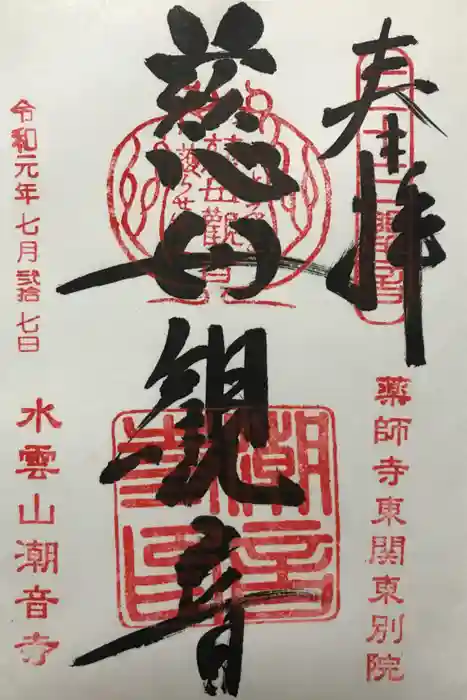 奉拝
薬師寺東関東別院
慈母観音
令和元年七月弐拾七日
水雲山潮音寺